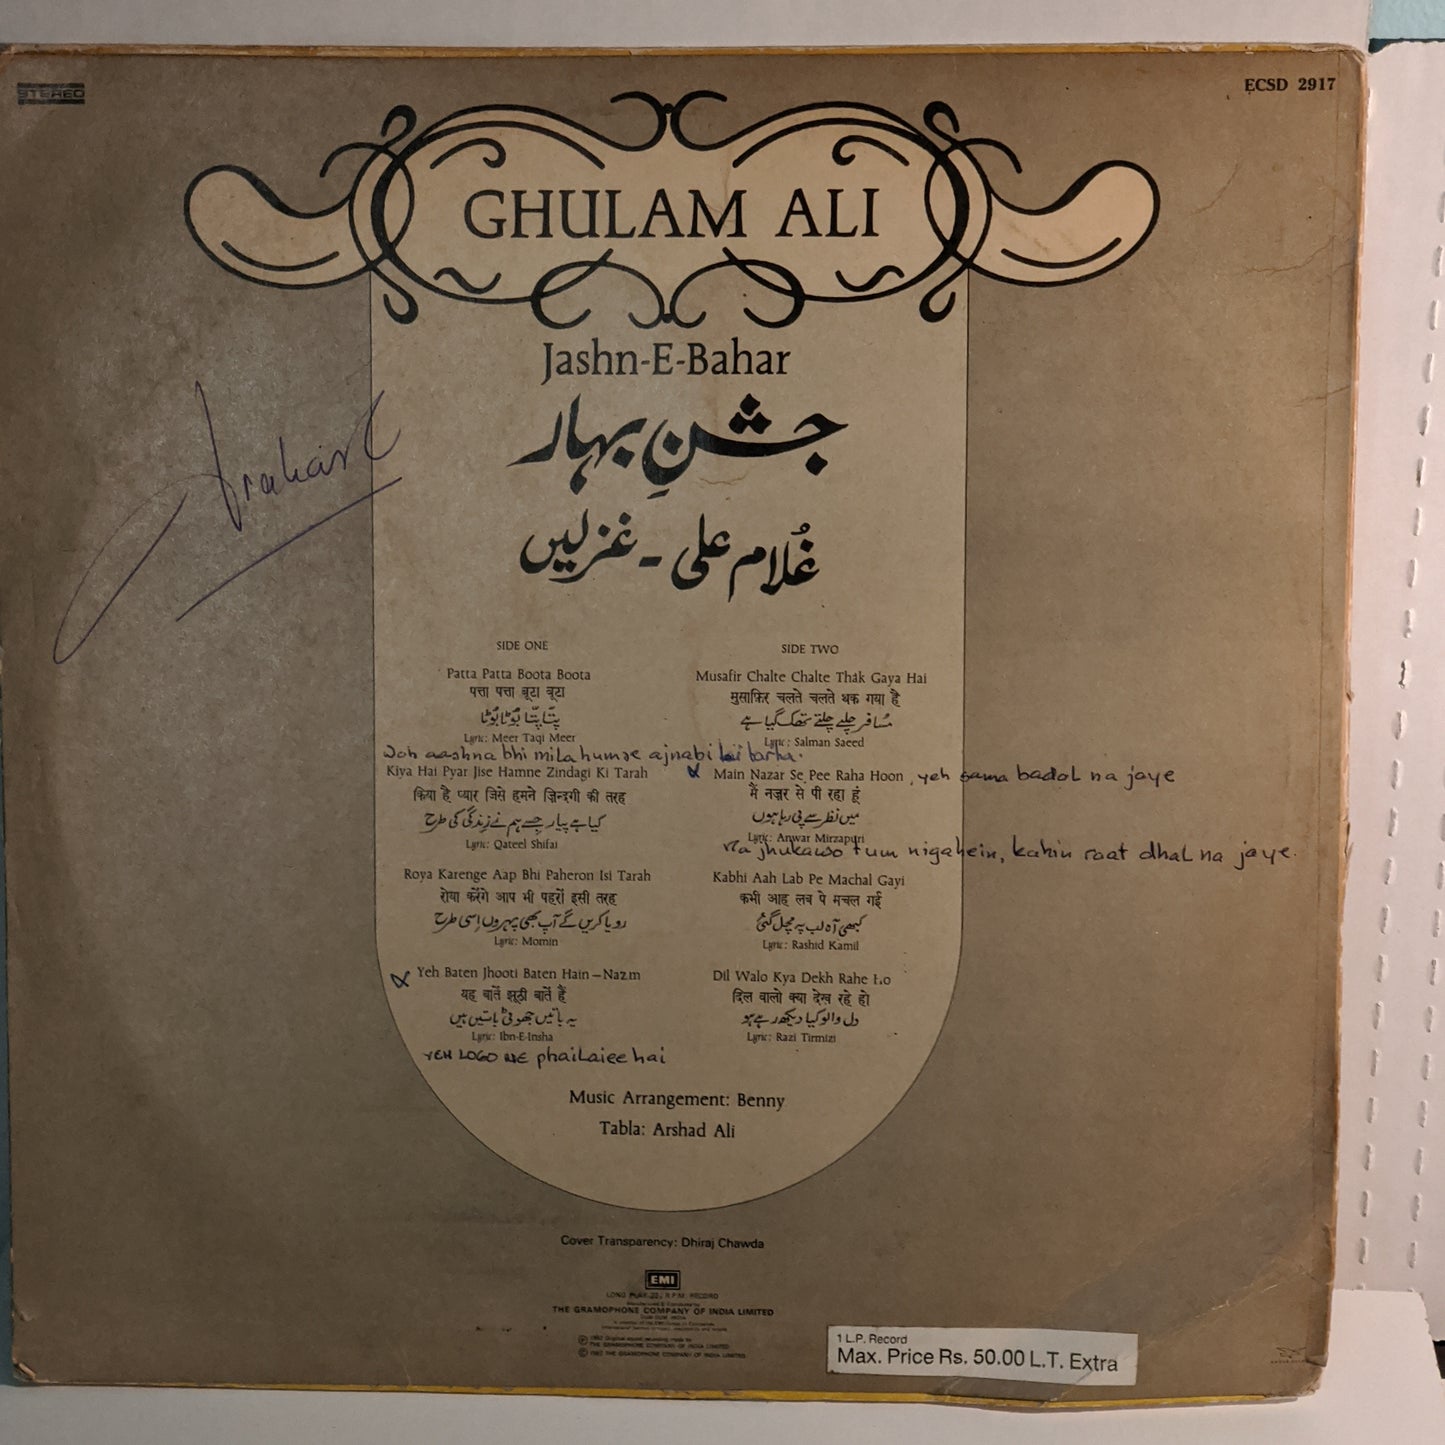 STEREO
ECSD 2917
GHULAM ALI
Jashn-E-Bahar
جشنِ بہار
غُلام علی - غزلیں
SIDE ONE
Patta Patta Boota Boota
पत्ता पत्ता बूटा बूटा
پتّا پتّا بُوٹا بُوٹا
Lyric: Meer Taqi Meer
Woh aashna bhi mila humse ajnabi ki tarha.
Kiya Hai Pyar Jise Hamne Zindagi Ki Tarah
किया है प्यार जिसे हमने ज़िन्दगी की तरह
کیا ہے پیار جسے ہم نے زندگی کی طرح
Lyric: Qateel Shifai
Roya Karenge Aap Bhi Paheron Isi Tarah
रोया करेंगे आप भी पहरों इसी तरह
رویا کریں گے آپ بھی پہروں اِسی طرح
Lyric: Momin
Yeh Baten Jhooti Baten Hain – Nazm
यह बातें झूठी बातें हैं
یہ باتیں جھوٹی باتیں ہیں
Lyric: Ibn-E-Insha
YEH LOGO NE phailaiee hai
SIDE TWO
Musafir Chalte Chalte Thak Gaya Hai
मुसाफ़िर चलते चलते थक गया है
مُسافر چلتے چلتے تھک گیا ہے
Lyric: Salman Saeed
Main Nazar Se Pee Raha Hoon , yeh sama badal na jaye
मैं नज़र से पी रहा हूं
میں نظر سے پی رہا ہوں
Lyric: Anwar Mirzapuri
Na jhukawo tum nigahein, kahin raat dhal na jaye.
Kabhi Aah Lab Pe Machal Gayi
कभी आह लब पे मचल गई
کبھی آہ لب پہ مچل گئی
Lyric: Rashid Kamil
Dil Walo Kya Dekh Rahe Ho
दिल वालो क्या देख रहे हो
دل والو کیا دیکھ رہے ہو
Lyric: Razi Tirmizi
Music Arrangement: Benny
Tabla: Arshad Ali
Cover Transparency: Dhiraj Chawda
EMI
THE GRAMOPHONE COMPANY OF INDIA LIMITED
℗ 1982 Original sound recording made by
THE GRAMOPHONE COMPANY OF INDIA LIMITED
© 1982 THE GRAMOPHONE COMPANY OF INDIA LIMITED
1 L.P. Record
Max. Price Rs. 50.00 L.T. Extra